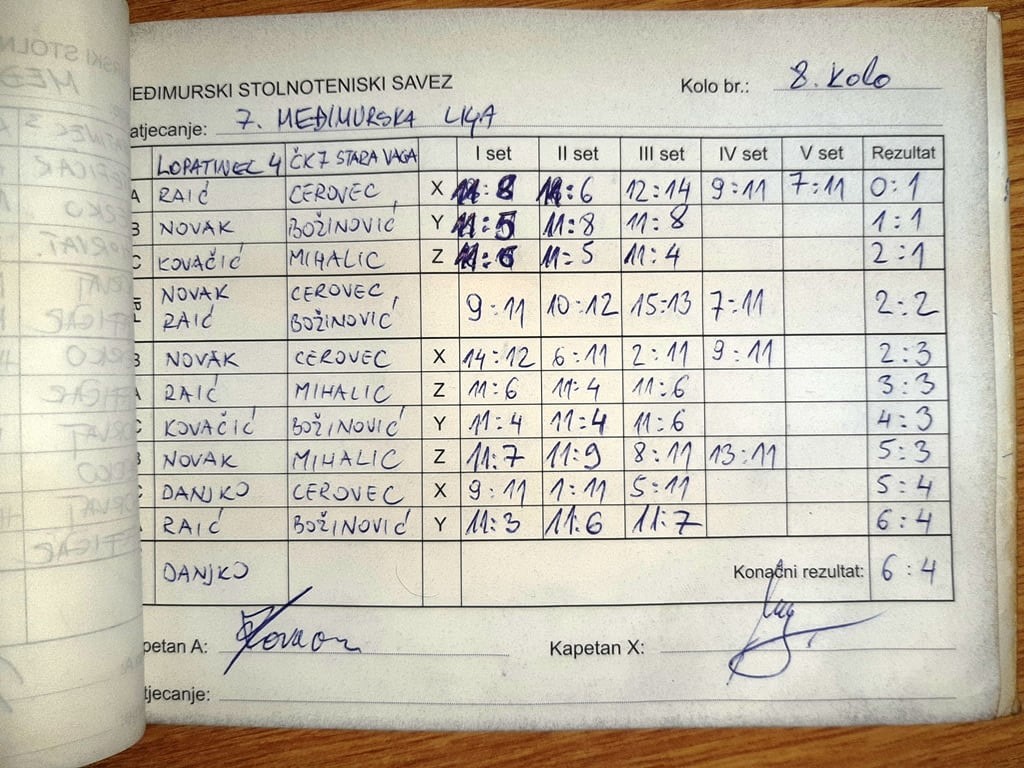 EĐIMURSKI STOLNOTENISKI SAVEZ Kolo br.: 8. KOLO
atjecanje: 7. MEĐIMURSKA LIGA
LOPATINEC 4 ČK7 STARA VAGA I set II set III set IV set V set Rezultat
A RAIĆ CEROVEC X 11:8 11:6 12:14 9:11 7:11 0:1
B NOVAK BOŽINOVIĆ Y 11:5 11:8 11:8 1:1
C KOVAČIĆ MIHALIC Z 11:6 11:5 11:4 2:1
NOVAK CEROVEC,
RAIĆ BOŽINOVIĆ 9:11 10:12 15:13 7:11 2:2
B NOVAK CEROVEC X 14:12 6:11 2:11 9:11 2:3
A RAIĆ MIHALIC Z 11:6 11:4 11:6 3:3
C KOVAČIĆ BOŽINOVIĆ Y 11:4 11:4 11:6 4:3
B NOVAK MIHALIC Z 11:7 11:9 8:11 13:11 5:3
C DANJKO CEROVEC X 9:11 1:11 5:11 5:4
A RAIĆ BOŽINOVIĆ Y 11:3 11:6 11:7 6:4
DANJKO Konačni rezultat: 6:4
petan A: Kapetan X:
tjecanje: